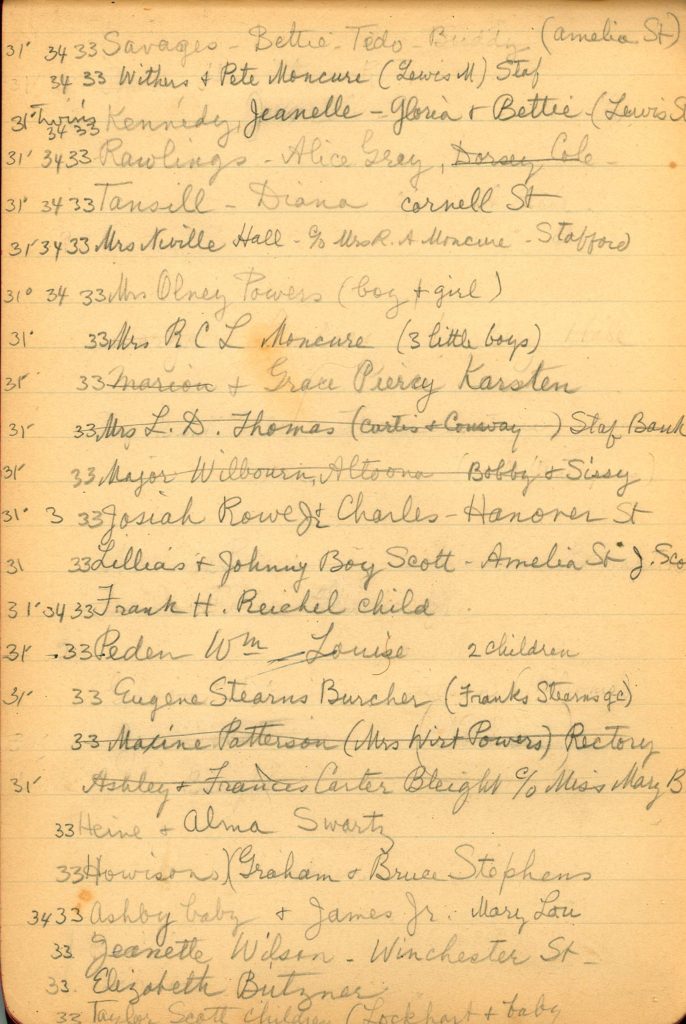 31' 34 33 Savages - Bettie - Tedo - Buddy (Amelia St)
34 33 Withers & Pete Moncure (Lewis M) Staf
31' Twins 34 33 Kennedy, Jeanelle - Gloria & Bettie - (Lewis S
31' 34 33 Rawlings - Alice Grey, Dorsey Cole -
31' 34 33 Tansill - Diana Cornell St
31' 34 33 Mrs Neville Hall - c/o Mrs R. A Moncure - Stafford
31' 34 33 Mrs Olney Powers (boy & girl)
31' 33 Mrs R C L Moncure (3 little boys)
31' 33 Marion & Grace Piercy Karsten
31' 33 Mrs L. D. Thomas (Curtis & Conway) Staf Bank
31' 33 Major Wilbourn, Altoona Bobby & Sissy
31' 3 33 Josiah Rowe Jr & Charles - Hanover St
31 33 Lillias & Johnny Boy Scott - Amelia St J. Sco
31' 34 33 Frank H. Reichel child
31' 33 Peden Wm - Louise 2 children
31' 33 Eugene Stearns Burcher (Franks Stearns gc)
33 Maxine Patterson (Mrs Wirt Powers) Rectory
31' Ashley & Frances Carter Bleight c/o Miss Mary B
33 Heine & Alma Swartz
33 Howisons) (Graham & Bruce Stephens
34 33 Ashby baby & James Jr. Mary Lou
33 Jeanette Wilson - Winchester St -
33. Elizabeth Butzner
33 Taylor Scott children (Lockhart & baby